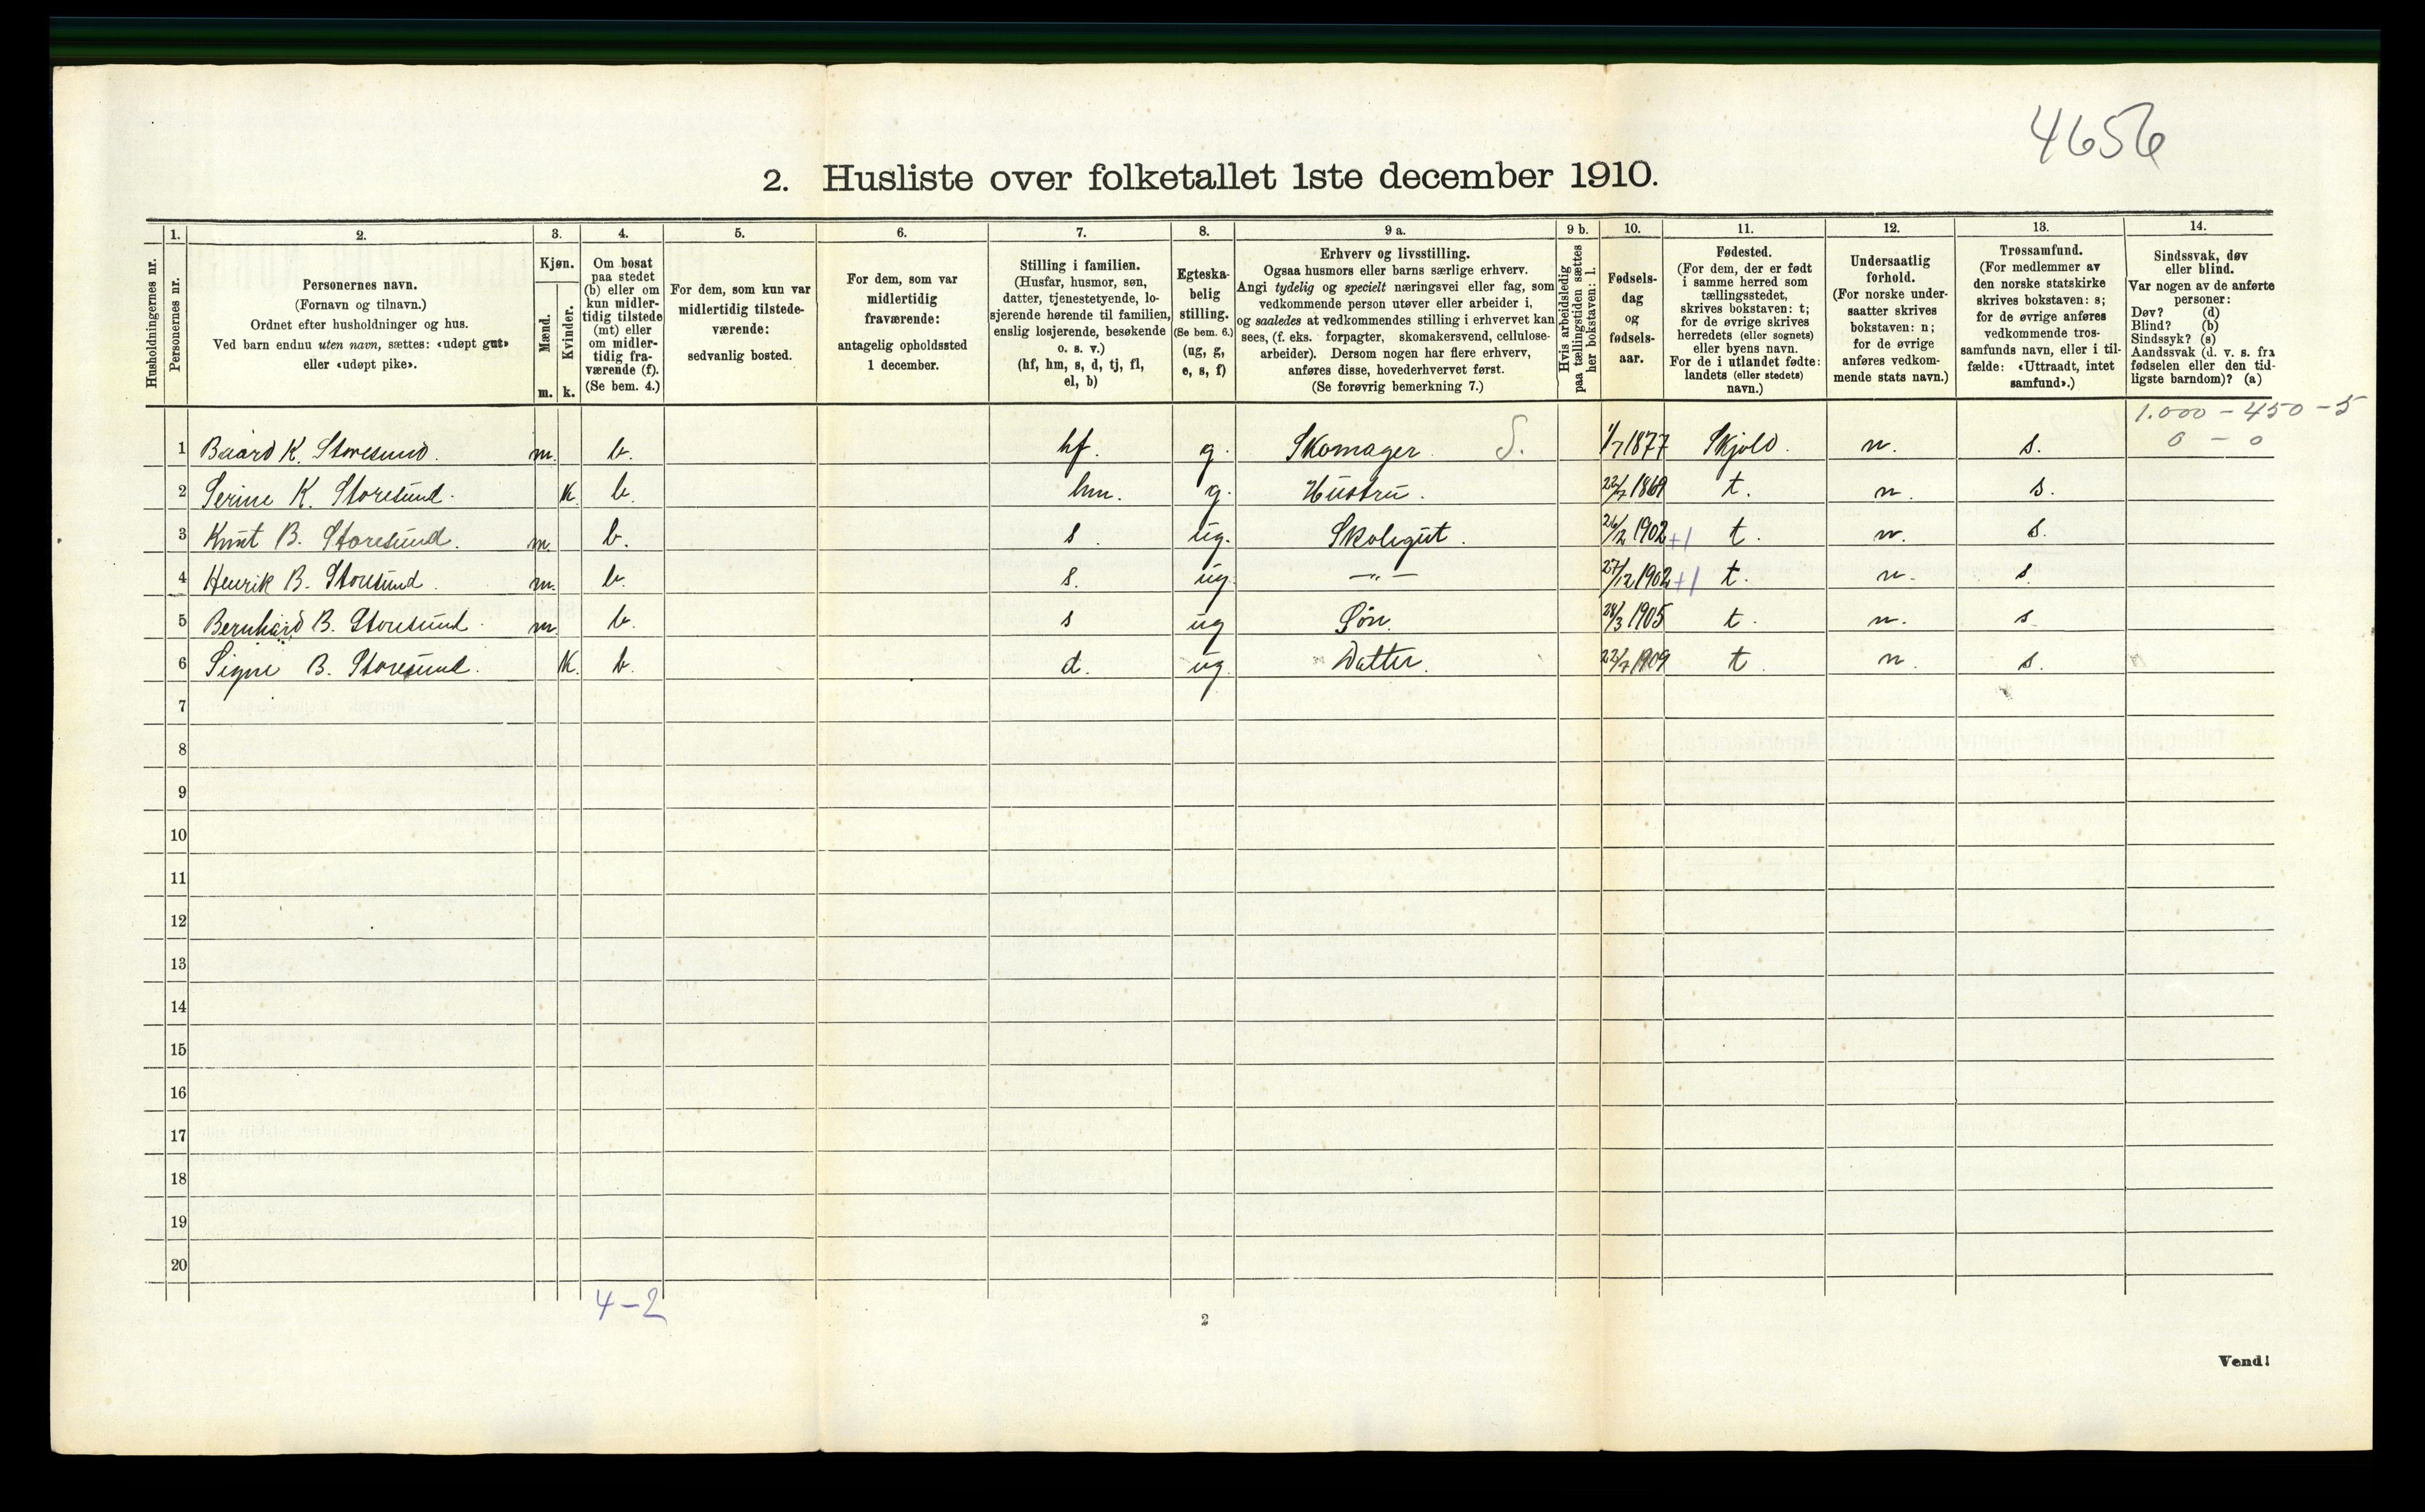 4656
2. Husliste over folketallet 1ste december 1910.
Husholdningernes nr.
1. Personernes nr.
2. Personernes navn.
(Fornavn og tilnavn.)
Ordnet efter husholdninger og hus.
Ved barn endnu uten navn, sættes: «udøpt gut»
eller «udøpt pike».
3. Kjøn.
Mænd. m.
Kvinder. k.
4. Om bosat
paa stedet
(b) eller om
kun midler-
tidig tilstede
(mt) eller
om midler-
tidig fra-
værende (f).
(Se bem. 4.)
5. For dem, som kun var
midlertidig tilstede-
værende:
sedvanlig bosted.
6. For dem, som var
midlertidig
fraværende:
antagelig opholdssted
1 december.
7. Stilling i familien.
(Husfar, husmor, søn,
datter, tjenestetyende, lo-
sjerende hørende til familien,
enslig losjerende, besøkende
o. s. v.)
(hf, hm, s, d, tj, fl,
el, b)
8. Egteska-
belig
stilling.
(Se bem. 6.)
(ug, g,
e, s, f)
9 a. Erhverv og livsstilling.
Ogsaa husmors eller barns særlige erhverv.
Angi tydelig og specielt næringsvei eller fag, som
vedkommende person utøver eller arbeider i,
og saaledes at vedkommendes stilling i erhvervet kan
sees, (f. eks. forpagter, skomakersvend, cellulose-
arbeider). Dersom nogen har flere erhverv,
anføres disse, hovederhvervet først.
(Se forøvrig bemerkning 7.)
9 b. Hvis arbeidsledig
paa tællingstiden sættes
her bokstaven: l.
10. Fødsels-
dag
og
fødsels-
aar.
11. Fødested.
(For dem, der er født
i samme herred som
tællingsstedet,
skrives bokstaven: t;
for de øvrige skrives
herredets (eller sognets)
eller byens navn.
For de i utlandet fødte:
landets (eller stedets)
navn.)
12. Undersaatlig
forhold.
(For norske under-
saatter skrives
bokstaven: n;
for de øvrige
anføres vedkom-
mende stats navn.)
13. Trossamfund.
(For medlemmer av
den norske statskirke
skrives bokstaven: s;
for de øvrige anføres
vedkommende tros-
samfunds navn, eller i til-
fælde: «Uttraadt, intet
samfund».)
14. Sindssvak, døv
eller blind.
Var nogen av de anførte
personer:
Døv? (d)
Blind? (b)
Sindssyk? (s)
Aandssvak (d. v. s. fra
fødselen eller den tid-
ligste barndom)? (a)
1.000 - 450 - 5
0 - 0
1 Baard K. Storesund. m. b. hf. g. Skomager. S. 1/7 1877 Skjold. n. s.
2 Serine K. Storesund. K. b. hm. g. Hustru. 22/7 1869 t. n. s.
3 Knut B. Storesund. m. b. s. ug. Skolegut. 26/2 1902 +1 t. n. s.
4 Henrik B. Storesund. m. b. s. ug. —"— 27/12 1902 +1 t. n. s.
5 Bernhard B. Storesund. m. b. s ug Søn. 28/3 1905 t. n. s
6 Signe B. Storesund. K. b. d. ug. Datter. 22/7 1909 t. n. s.
7
8
9
10
11
12
13
14
15
16
17
18
19
20
4-2
2
Vend!